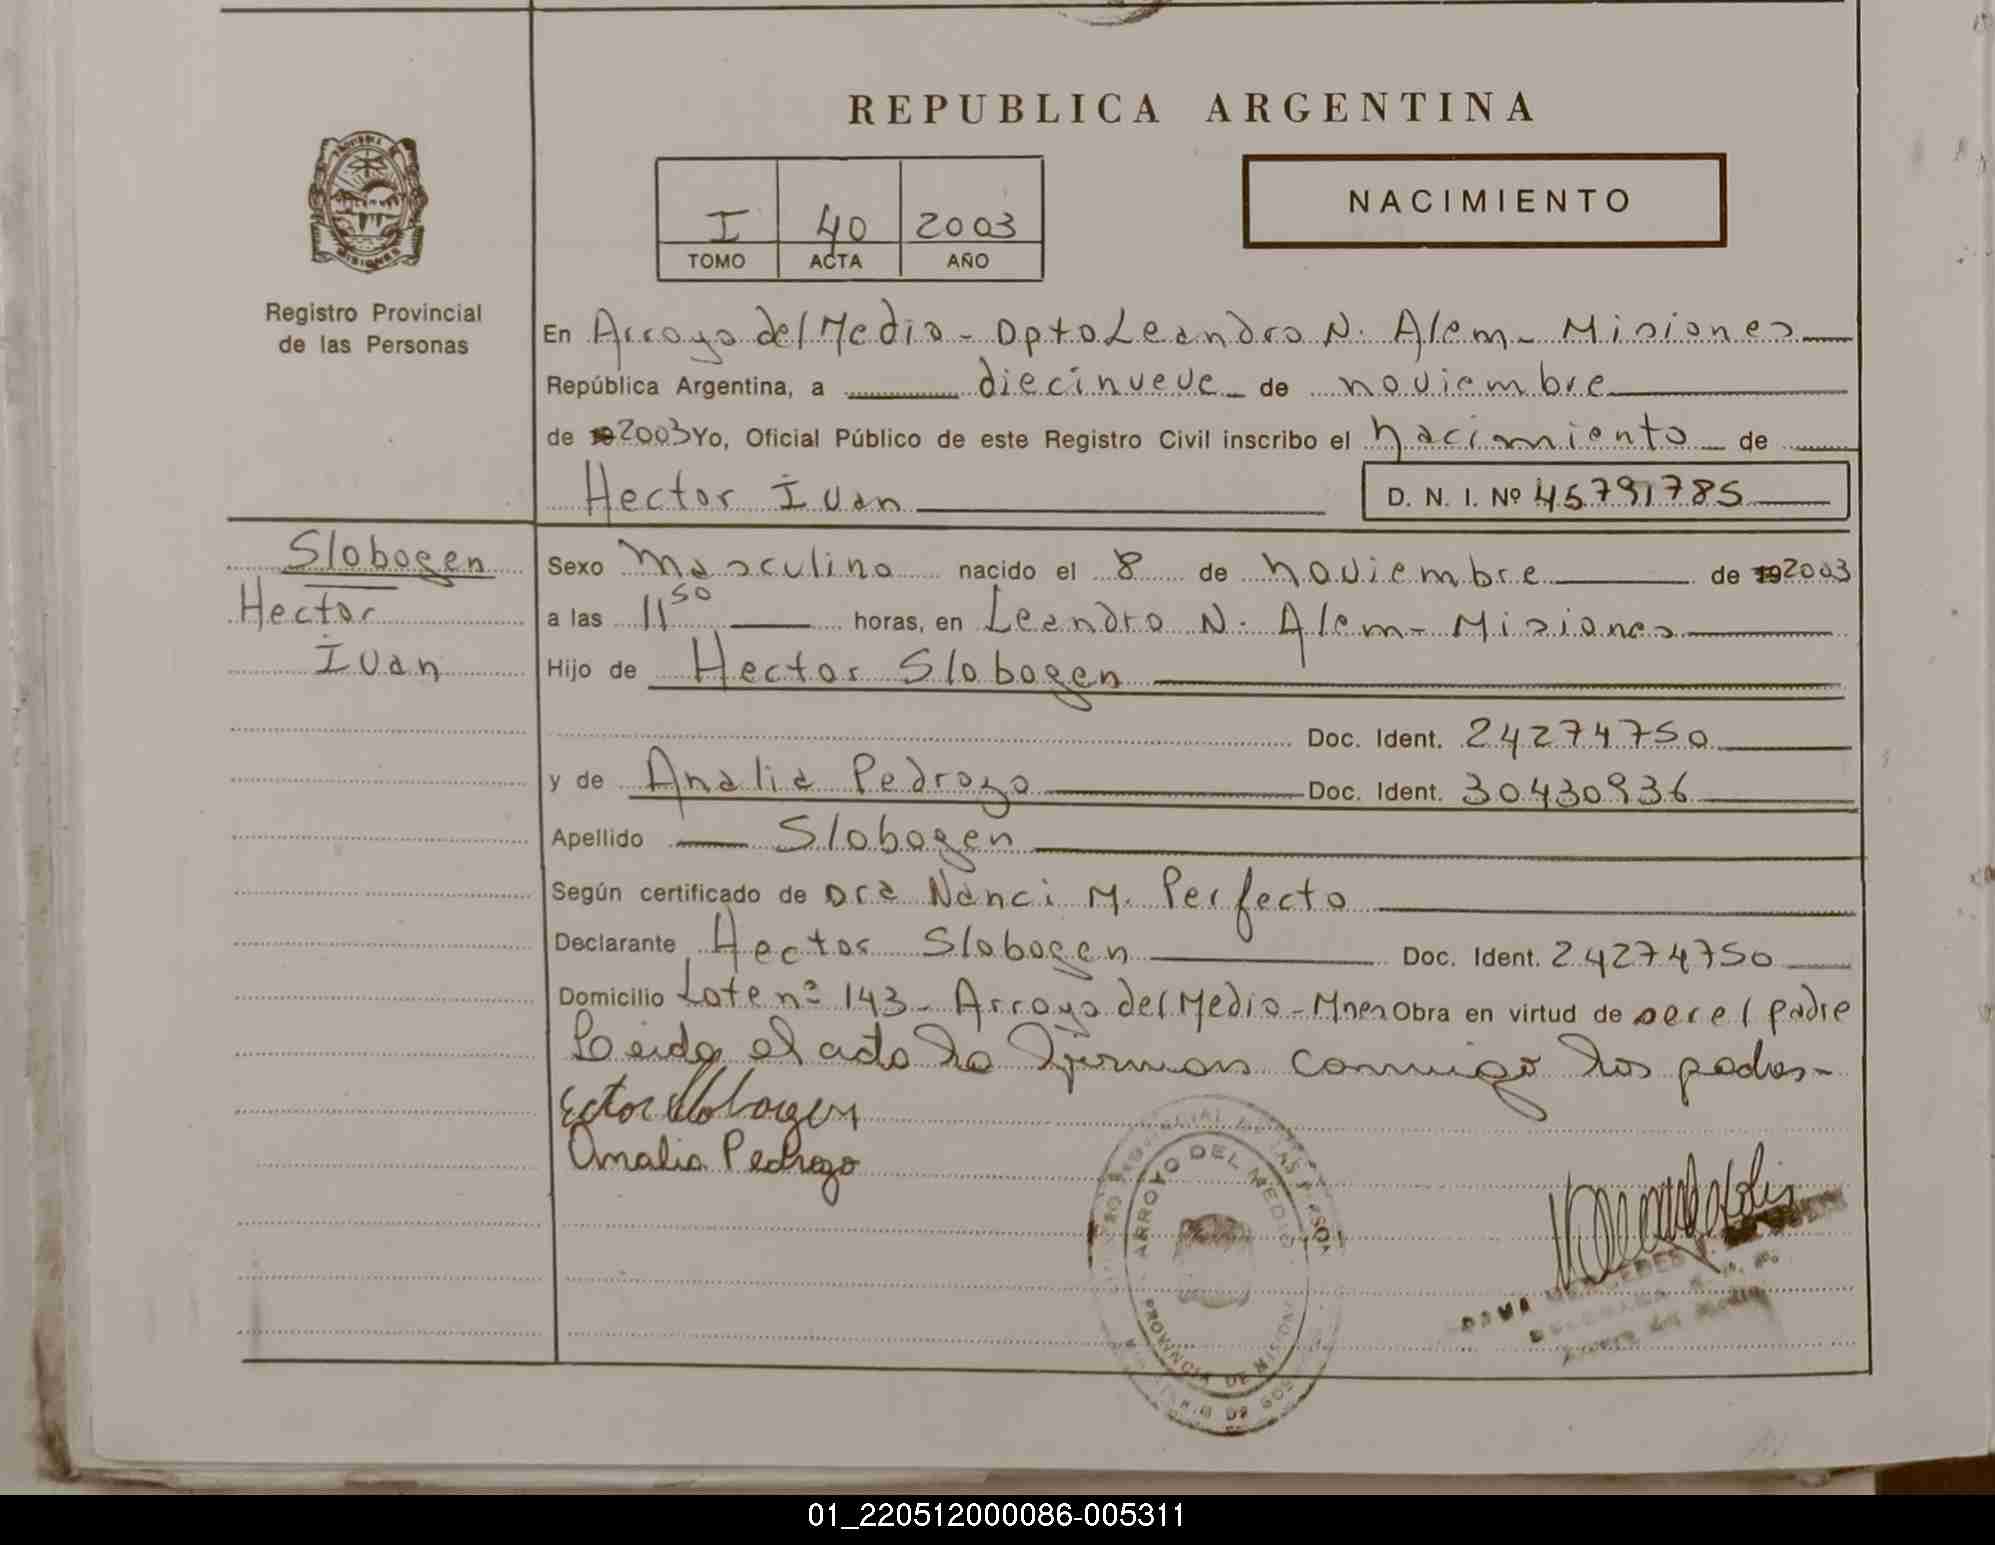 REPUBLICA ARGENTINA
NACIMIENTO
I 40 2003
TOMO ACTA AÑO
Registro Provincial
de las Personas
En Arroyo del Medio - Dpto Leandro N. Alem - Misiones
República Argentina, a diecinueve de noviembre
de 19 2003 Yo, Oficial Público de este Registro Civil inscribo el nacimiento de
Hector Ivan D. N. I. Nº 45791785
Slobogen
Hector
Ivan
Sexo Masculino nacido el 8 de noviembre de 19 2003
a las 11 50 horas, en Leandro N. Alem - Misiones
Hijo de Hector Slobogen
Doc. Ident. 24274750
y de Analia Pedrozo Doc. Ident. 30430936
Apellido Slobogen
Según certificado de Dra Nanci M. Perfecto
Declarante Hector Slobogen Doc. Ident. 24274750
Domicilio Lote nº 143 - Arroyo del Medio - Mnes Obra en virtud de ser el padre
Leida el acta la firman conmigo los padres -
Ector Slobogen
Analia Pedrozo
ARROYO DEL MEDIO
PROVINCIA DE MISIONES
MERCEDES
Arroyo del Medio
01_220512000086-005311